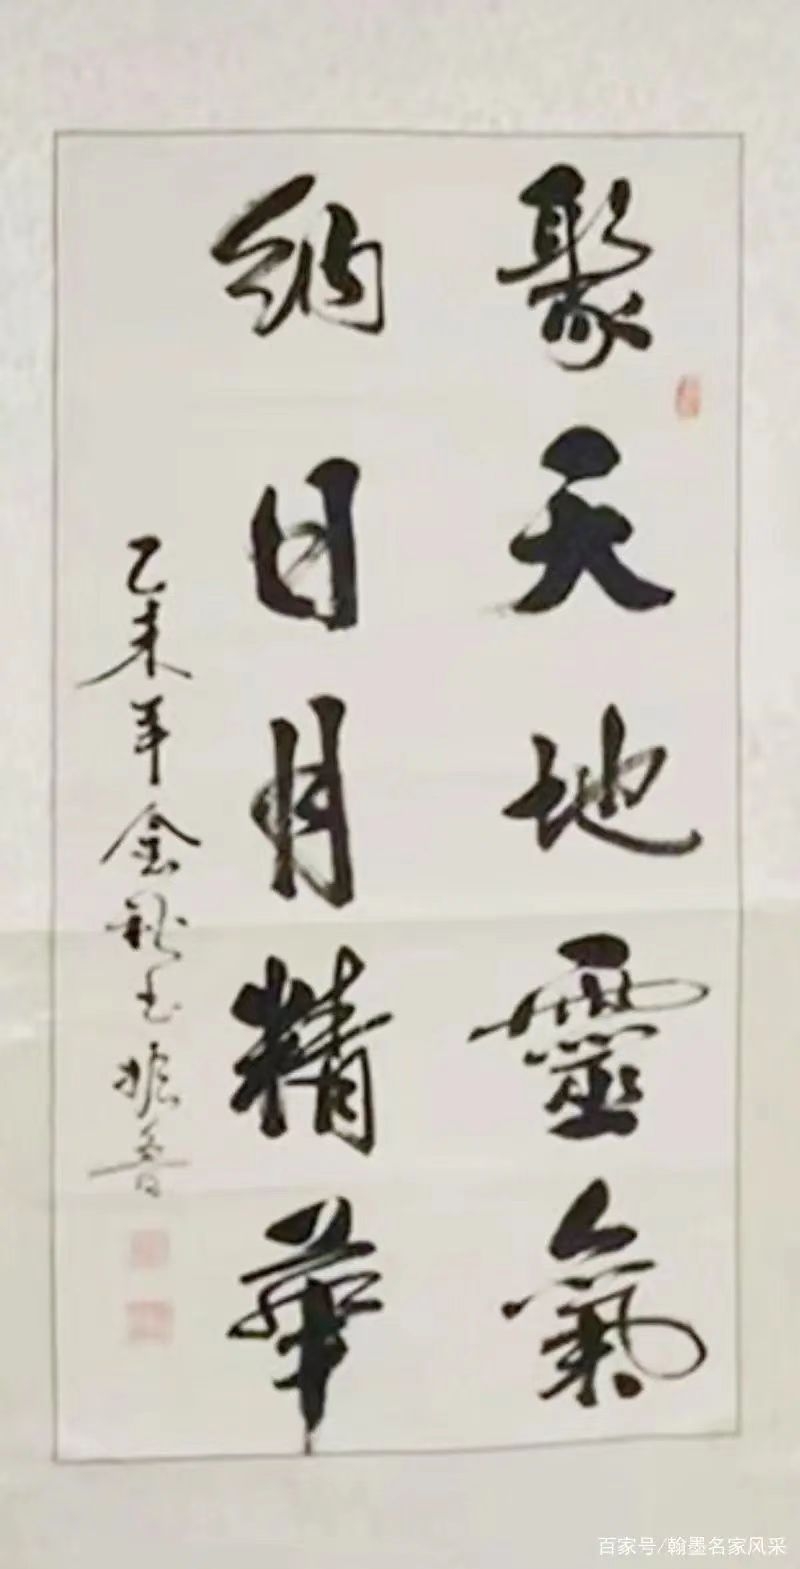 聚天地靈氣
納日月精華
乙未年金秋書振魯
百家号/翰墨名家风采